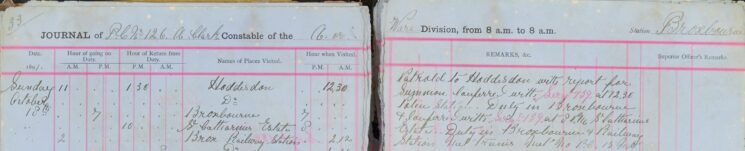 33
JOURNAL of P.C. No 126 A Clark Constable of the
Date. Hour of going on Duty. Hour of Return from Duty. Names of Places Visited. Hour when Visited.
189 . A.M. P.M. A.M. P.M. A.M. P.M.
Sunday 11 1 30 Hoddesdon 12.30
October Do
18th 7 Broxbourne 7
10 St Catharines Estate 8
2 Brox Railway Station 2.12
Ware Division, from 8 a.m. to 8 a.m. Station Broxbourne
REMARKS, &c. Superior Officer's Remarks.
Patrold to Hoddesdon with report for
Summons Conferrd with Sergt 139 at 12.30
Duty in Broxbourne
& Conferrd with Sergt 139 at 8 P.M. St Catharines
Estate Duty in Broxbourne & Railway
Station met trains met